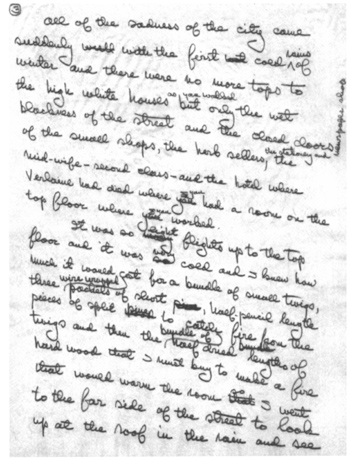 ③
all of the sadness of the city came
suddenly with the first cold rains of
winter and there were no more tops to
the high white houses as you walked but only the wet
blackness of the street and the closed doors
of the small shops, the herb sellers, the stationery and newspaper shops the
mid-wife-second class-and the hotel where
Verlaine had died where you had a room on the
top floor where you worked.
It was so flights up to the top
floor and it was cold and I knew how
much it would cost for a bundle of small twigs,
three wire wrapped packets of short, half pencil length
pieces of split to catch fire from the
twigs and then the bundle of half dried lengths of
hard wood that I must buy to make a fire
that would warm the room so I went
to the far side of the street to look
up at the roof in the rain and see